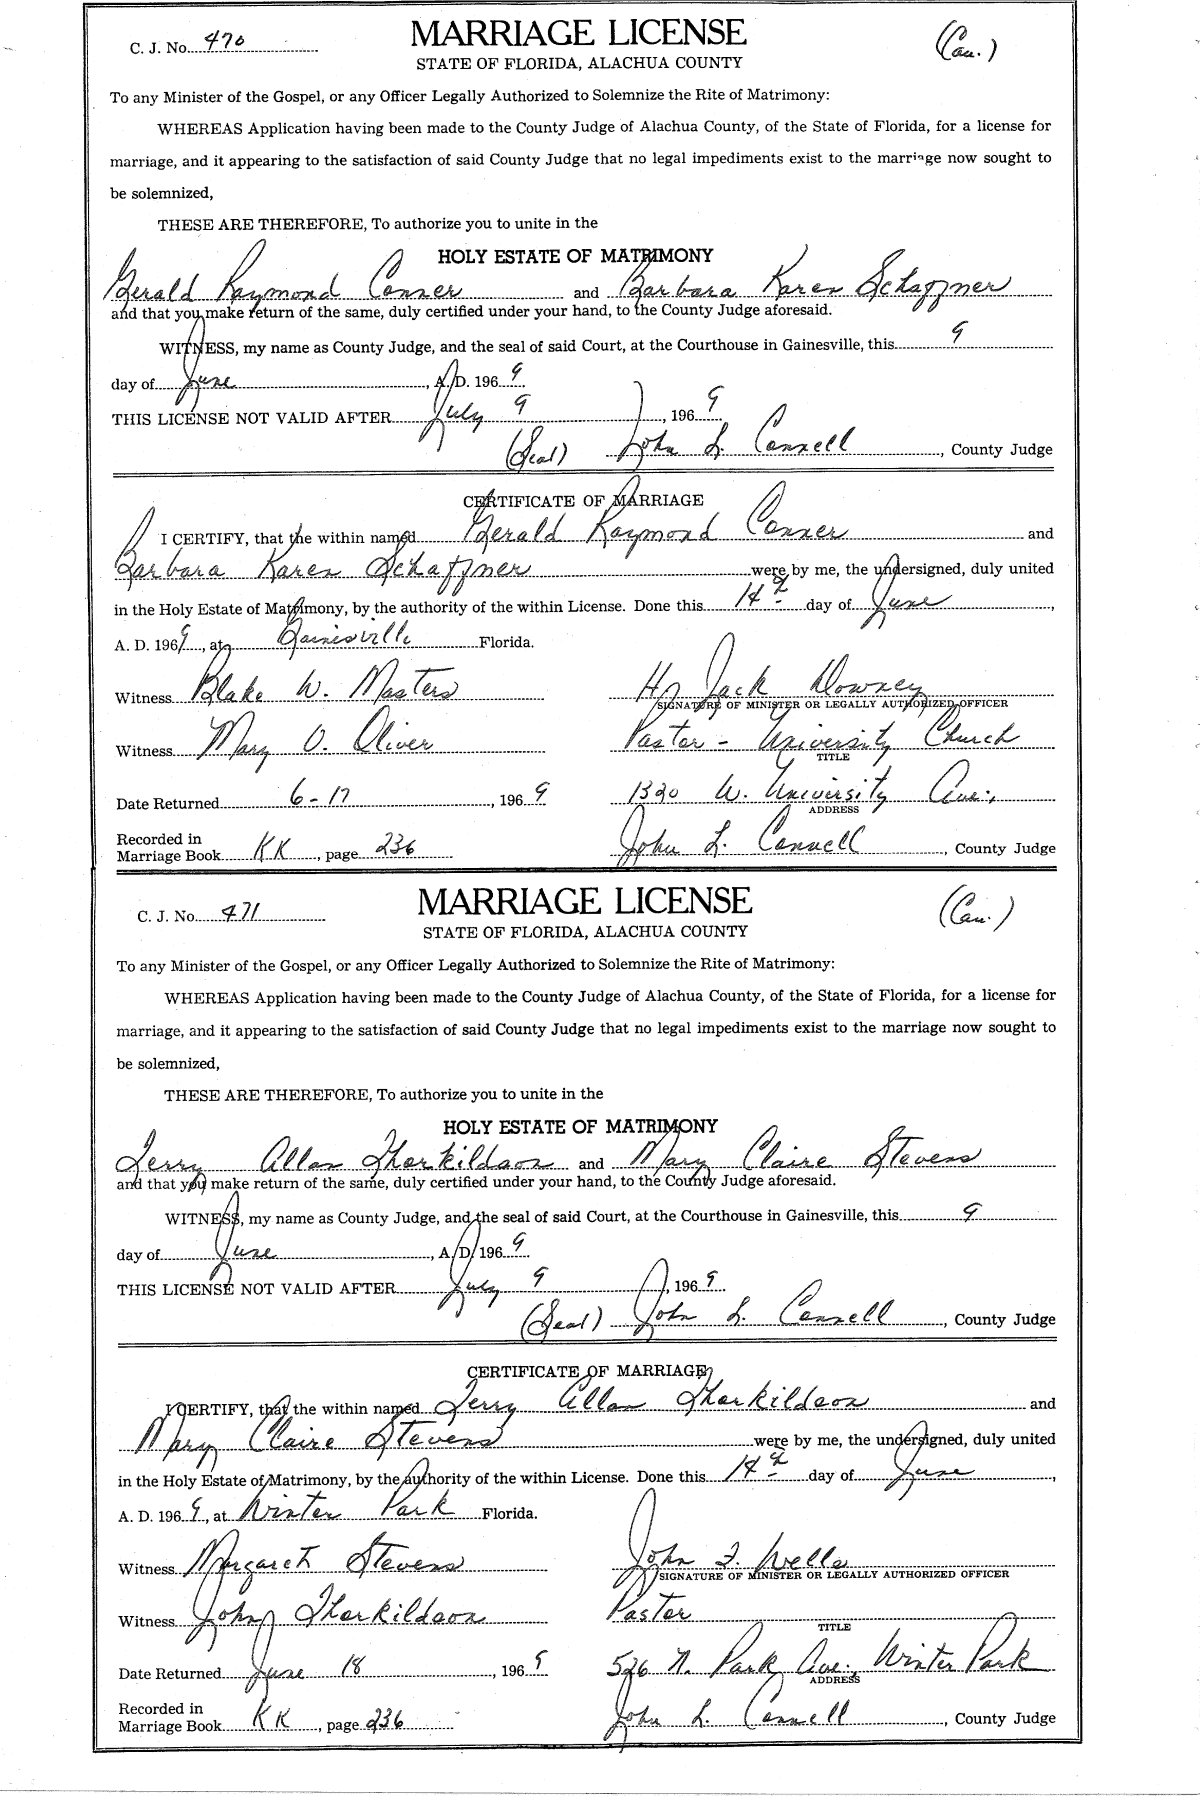 C. J. No. 470 MARRIAGE LICENSE (Cau.)
STATE OF FLORIDA, ALACHUA COUNTY
To any Minister of the Gospel, or any Officer Legally Authorized to Solemnize the Rite of Matrimony:
WHEREAS Application having been made to the County Judge of Alachua County, of the State of Florida, for a license for
marriage, and it appearing to the satisfaction of said County Judge that no legal impediments exist to the marriage now sought to
be solemnized,
THESE ARE THEREFORE, To authorize you to unite in the
HOLY ESTATE OF MATRIMONY
Gerald Raymond Conner and Barbara Karen Schaffner
and that you make return of the same, duly certified under your hand, to the County Judge aforesaid.
WITNESS, my name as County Judge, and the seal of said Court, at the Courthouse in Gainesville, this 9
day of June, A. D. 1969
THIS LICENSE NOT VALID AFTER July 9, 1969
(Seal) John L. Connell, County Judge
CERTIFICATE OF MARRIAGE
I CERTIFY, that the within named Gerald Raymond Conner and
Barbara Karen Schaffner were by me, the undersigned, duly united
in the Holy Estate of Matrimony, by the authority of the within License. Done this 14th day of June,
A. D. 1969, at Gainesville Florida.
Witness Blake W. Masters Jack Downey
SIGNATURE OF MINISTER OR LEGALLY AUTHORIZED OFFICER
Witness Mary O. Oliver Pastor - University Church
TITLE
Date Returned 6-17, 1969 1320 W. University Ave.,
ADDRESS
Recorded in
Marriage Book KK, page 236 John L. Connell, County Judge
C. J. No. 471 MARRIAGE LICENSE (Cau.)
STATE OF FLORIDA, ALACHUA COUNTY
To any Minister of the Gospel, or any Officer Legally Authorized to Solemnize the Rite of Matrimony:
WHEREAS Application having been made to the County Judge of Alachua County, of the State of Florida, for a license for
marriage, and it appearing to the satisfaction of said County Judge that no legal impediments exist to the marriage now sought to
be solemnized,
THESE ARE THEREFORE, To authorize you to unite in the
HOLY ESTATE OF MATRIMONY
Terry Allan Thorkildson and Mary Claire Stevens
and that you make return of the same, duly certified under your hand, to the County Judge aforesaid.
WITNESS, my name as County Judge, and the seal of said Court, at the Courthouse in Gainesville, this 9
day of June, A. D. 1969
THIS LICENSE NOT VALID AFTER July 9, 1969
(Seal) John L. Connell, County Judge
CERTIFICATE OF MARRIAGE
I CERTIFY, that the within named Terry Allan Thorkildson and
Mary Claire Stevens were by me, the undersigned, duly united
in the Holy Estate of Matrimony, by the authority of the within License. Done this 14th day of June,
A. D. 1969, at Winter Park Florida.
Witness Margaret Stevens John F. Wells
SIGNATURE OF MINISTER OR LEGALLY AUTHORIZED OFFICER
Witness John Thorkildson Pastor
TITLE
Date Returned June 18, 1969 526 N. Park Ave., Winter Park
ADDRESS
Recorded in
Marriage Book KK, page 236 John L. Connell, County Judge